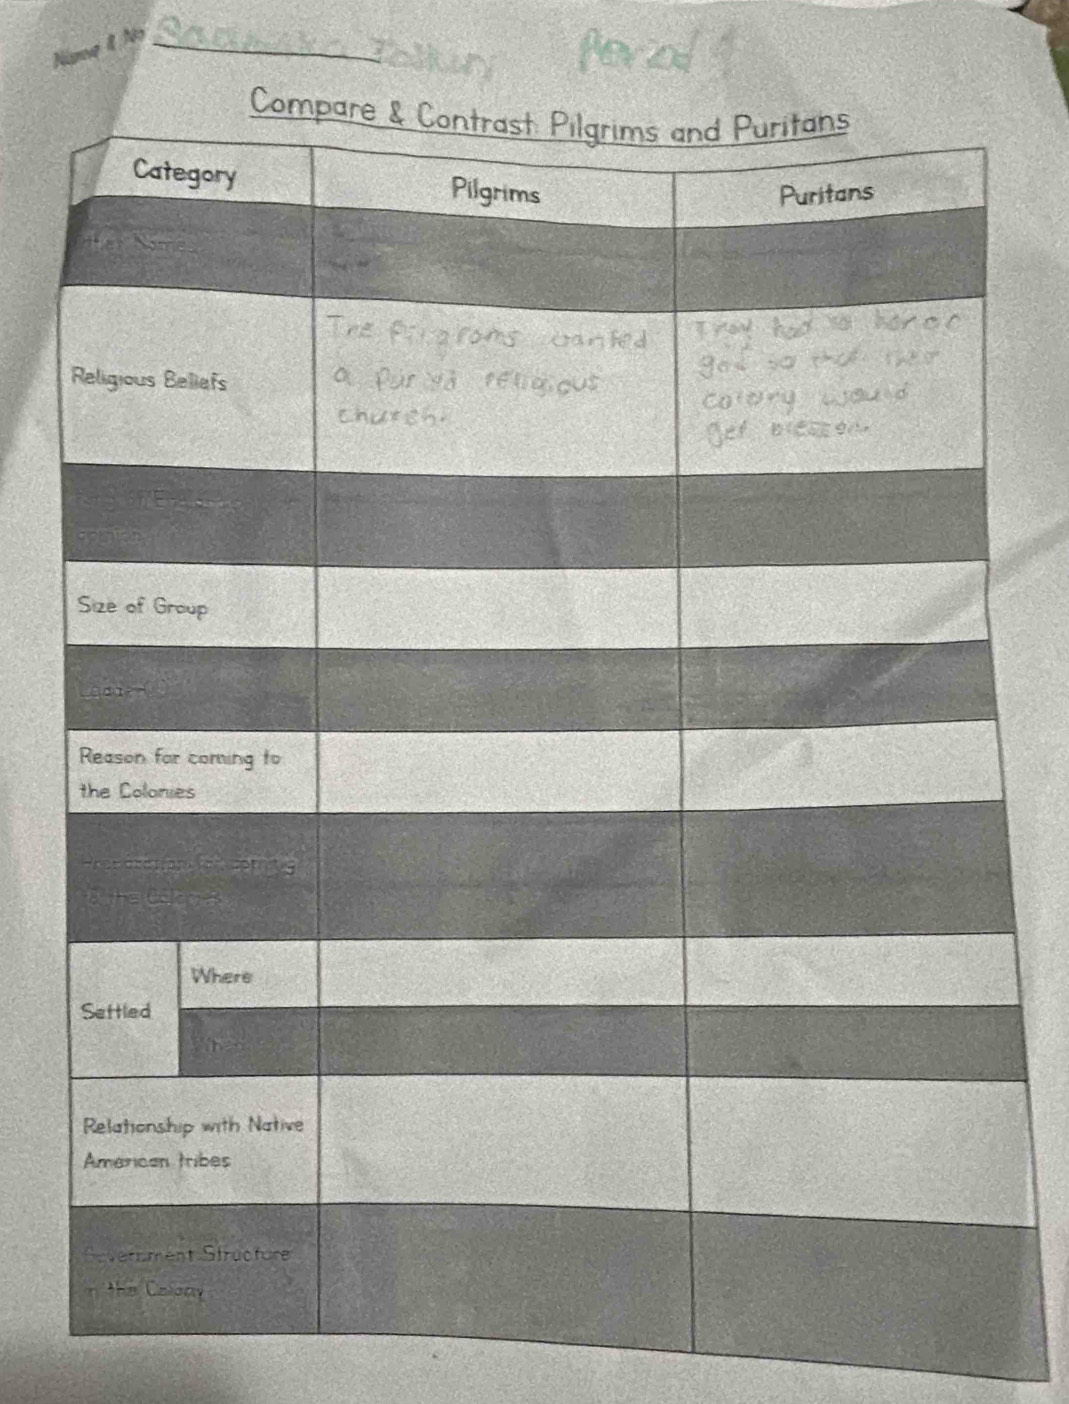 Name & No
Period
Compare & Contrast Pilgrims and Puritans
Category
Pilgrims
Puritans
Religious Beliefs
The Pilgroms wanted
a religious
church.
They had to honor
god so that their
colony would
get
Size of Group
Reason for coming to
the Colonies
Preparation for coming
to the Colonies
Settled
Where
When
Relationship with Native
American tribes
Government Structure
in the Colony